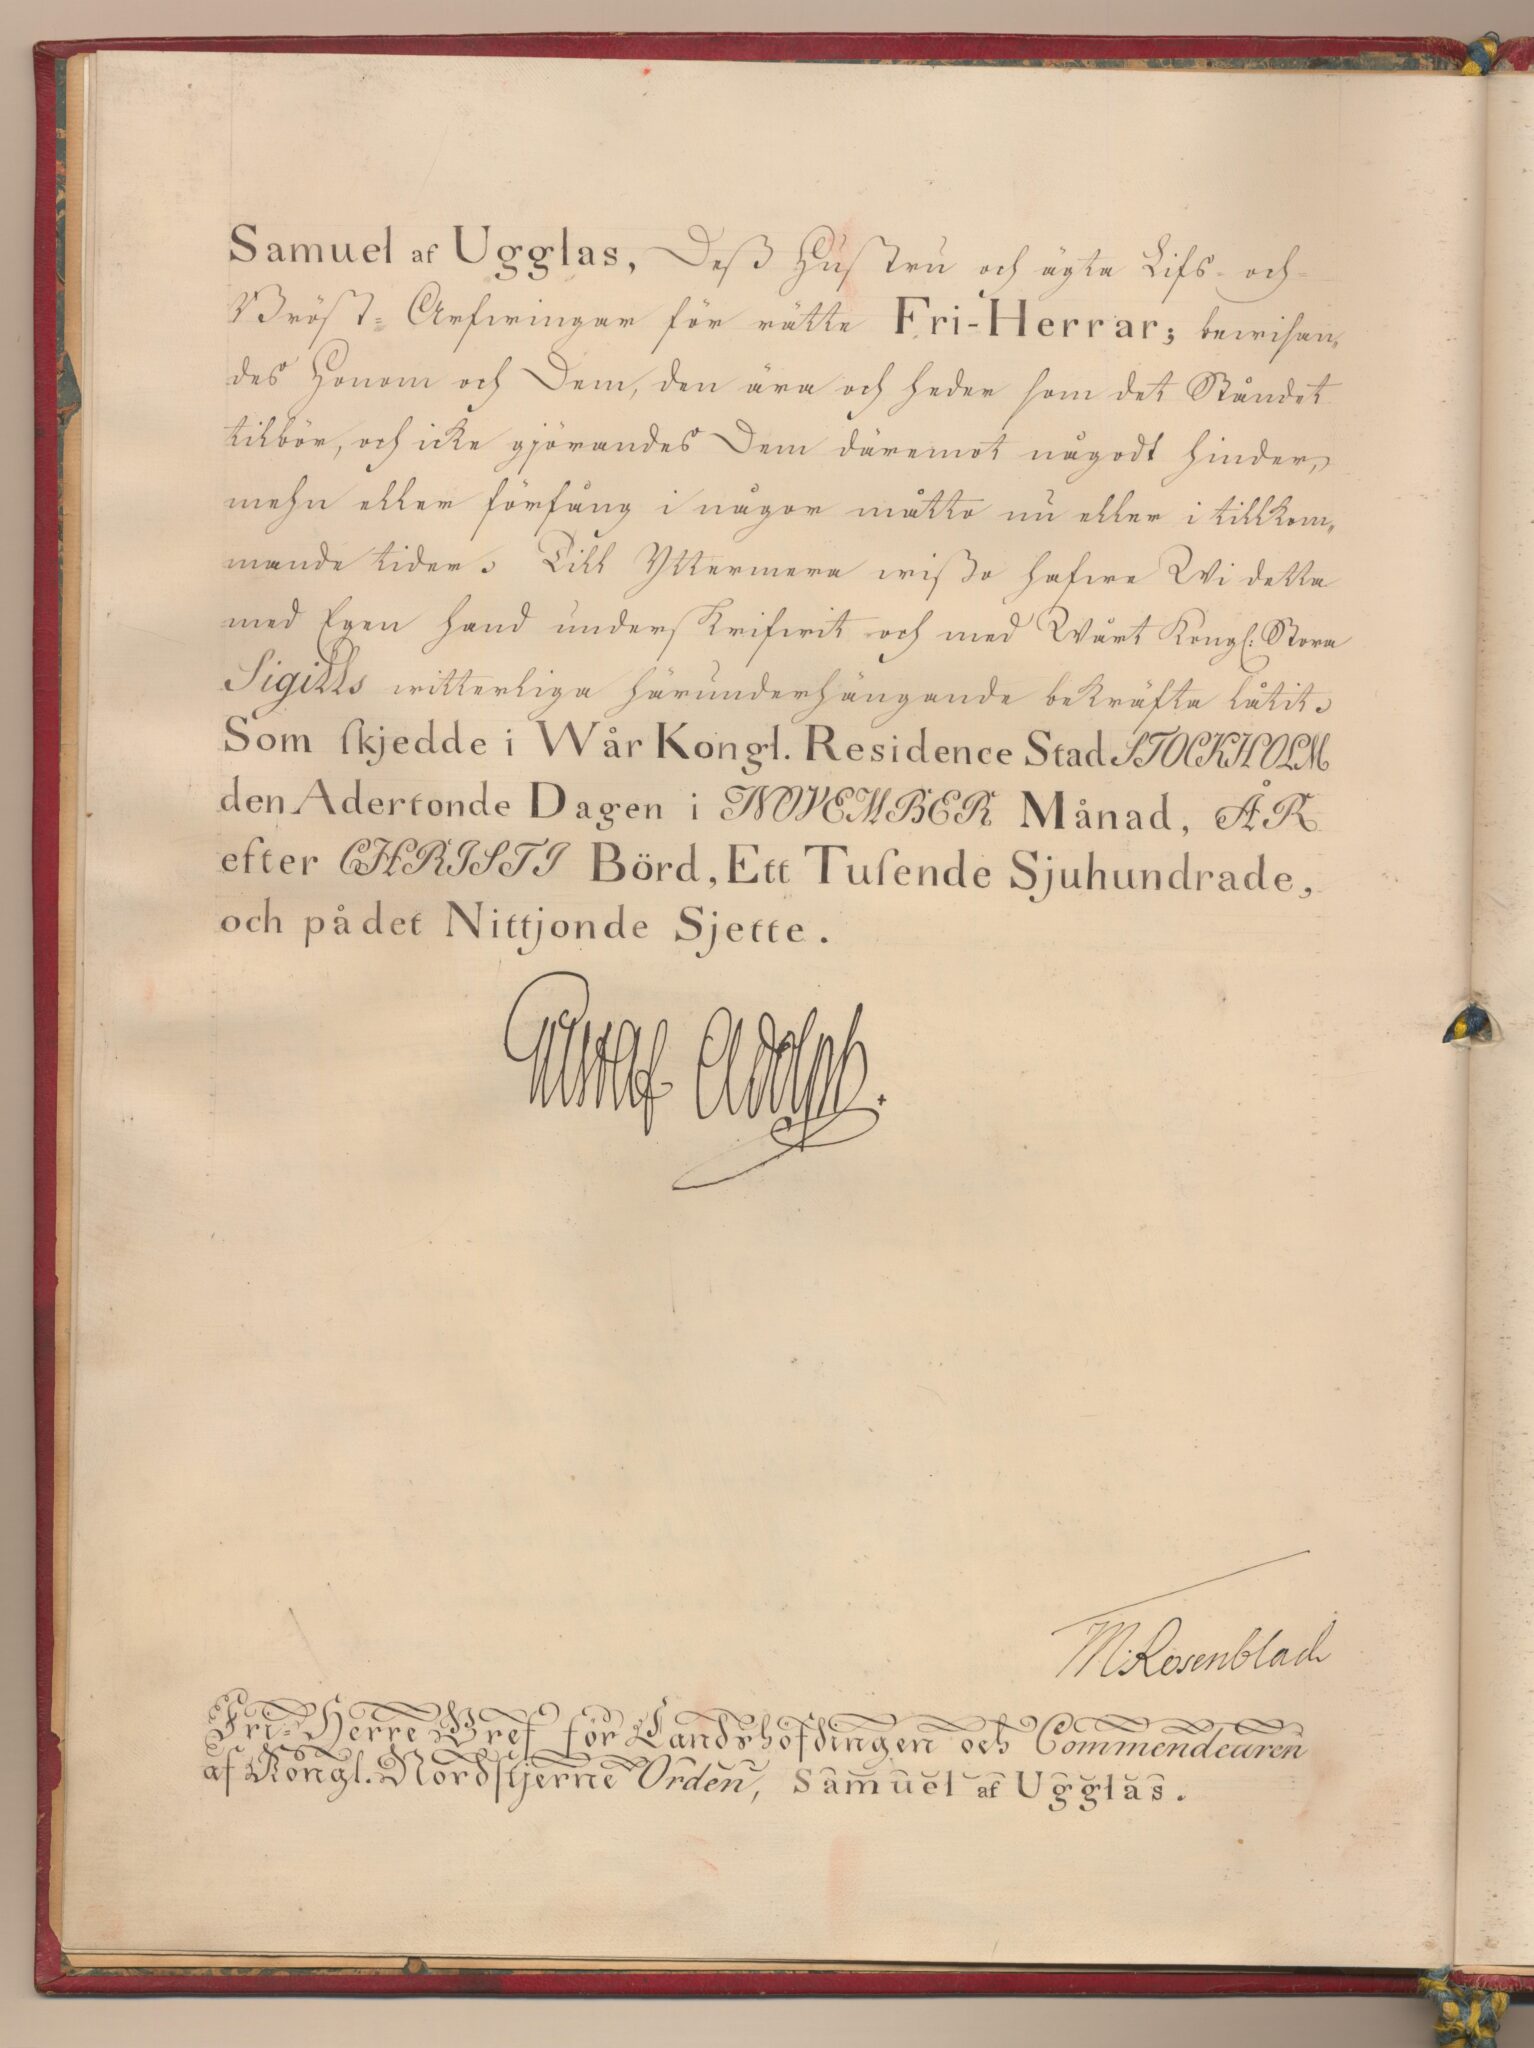 Samuel af Ugglas, Deß Hustru och ägta Lifs- och-
Bröst- Arfwingar för rätte Fri-Herrar; bewisan-
des Honom och Dem, den ära och heder som det Ståndet
tilbör, och icke gjörandes Dem däremot någodt hinder,
mehn eller förfång i någor måtto nu eller i tillkom-
mande tider. Till Yttermera wißo hafwe Wi detta
med Egen hand underskrifwit och med Wårt Kongl: Stora
Sigills witterliga härunderhängande bekräfta låtit.
Som skjedde i Wår Kongl. Residence Stad STOCKHOLM
den Adertonde Dagen i NOVEMBER Månad, ÅR
efter CHRISTI Börd, Ett Tusende Sjuhundrade,
och på det Nittjonde Sjette.
Gustaf Adolph.
M. Rosenblad
Fri-Herre Bref för Landshöfdingen och Commendeuren
af Kongl. Nordstjerne Orden, Samuel af Ugglas.